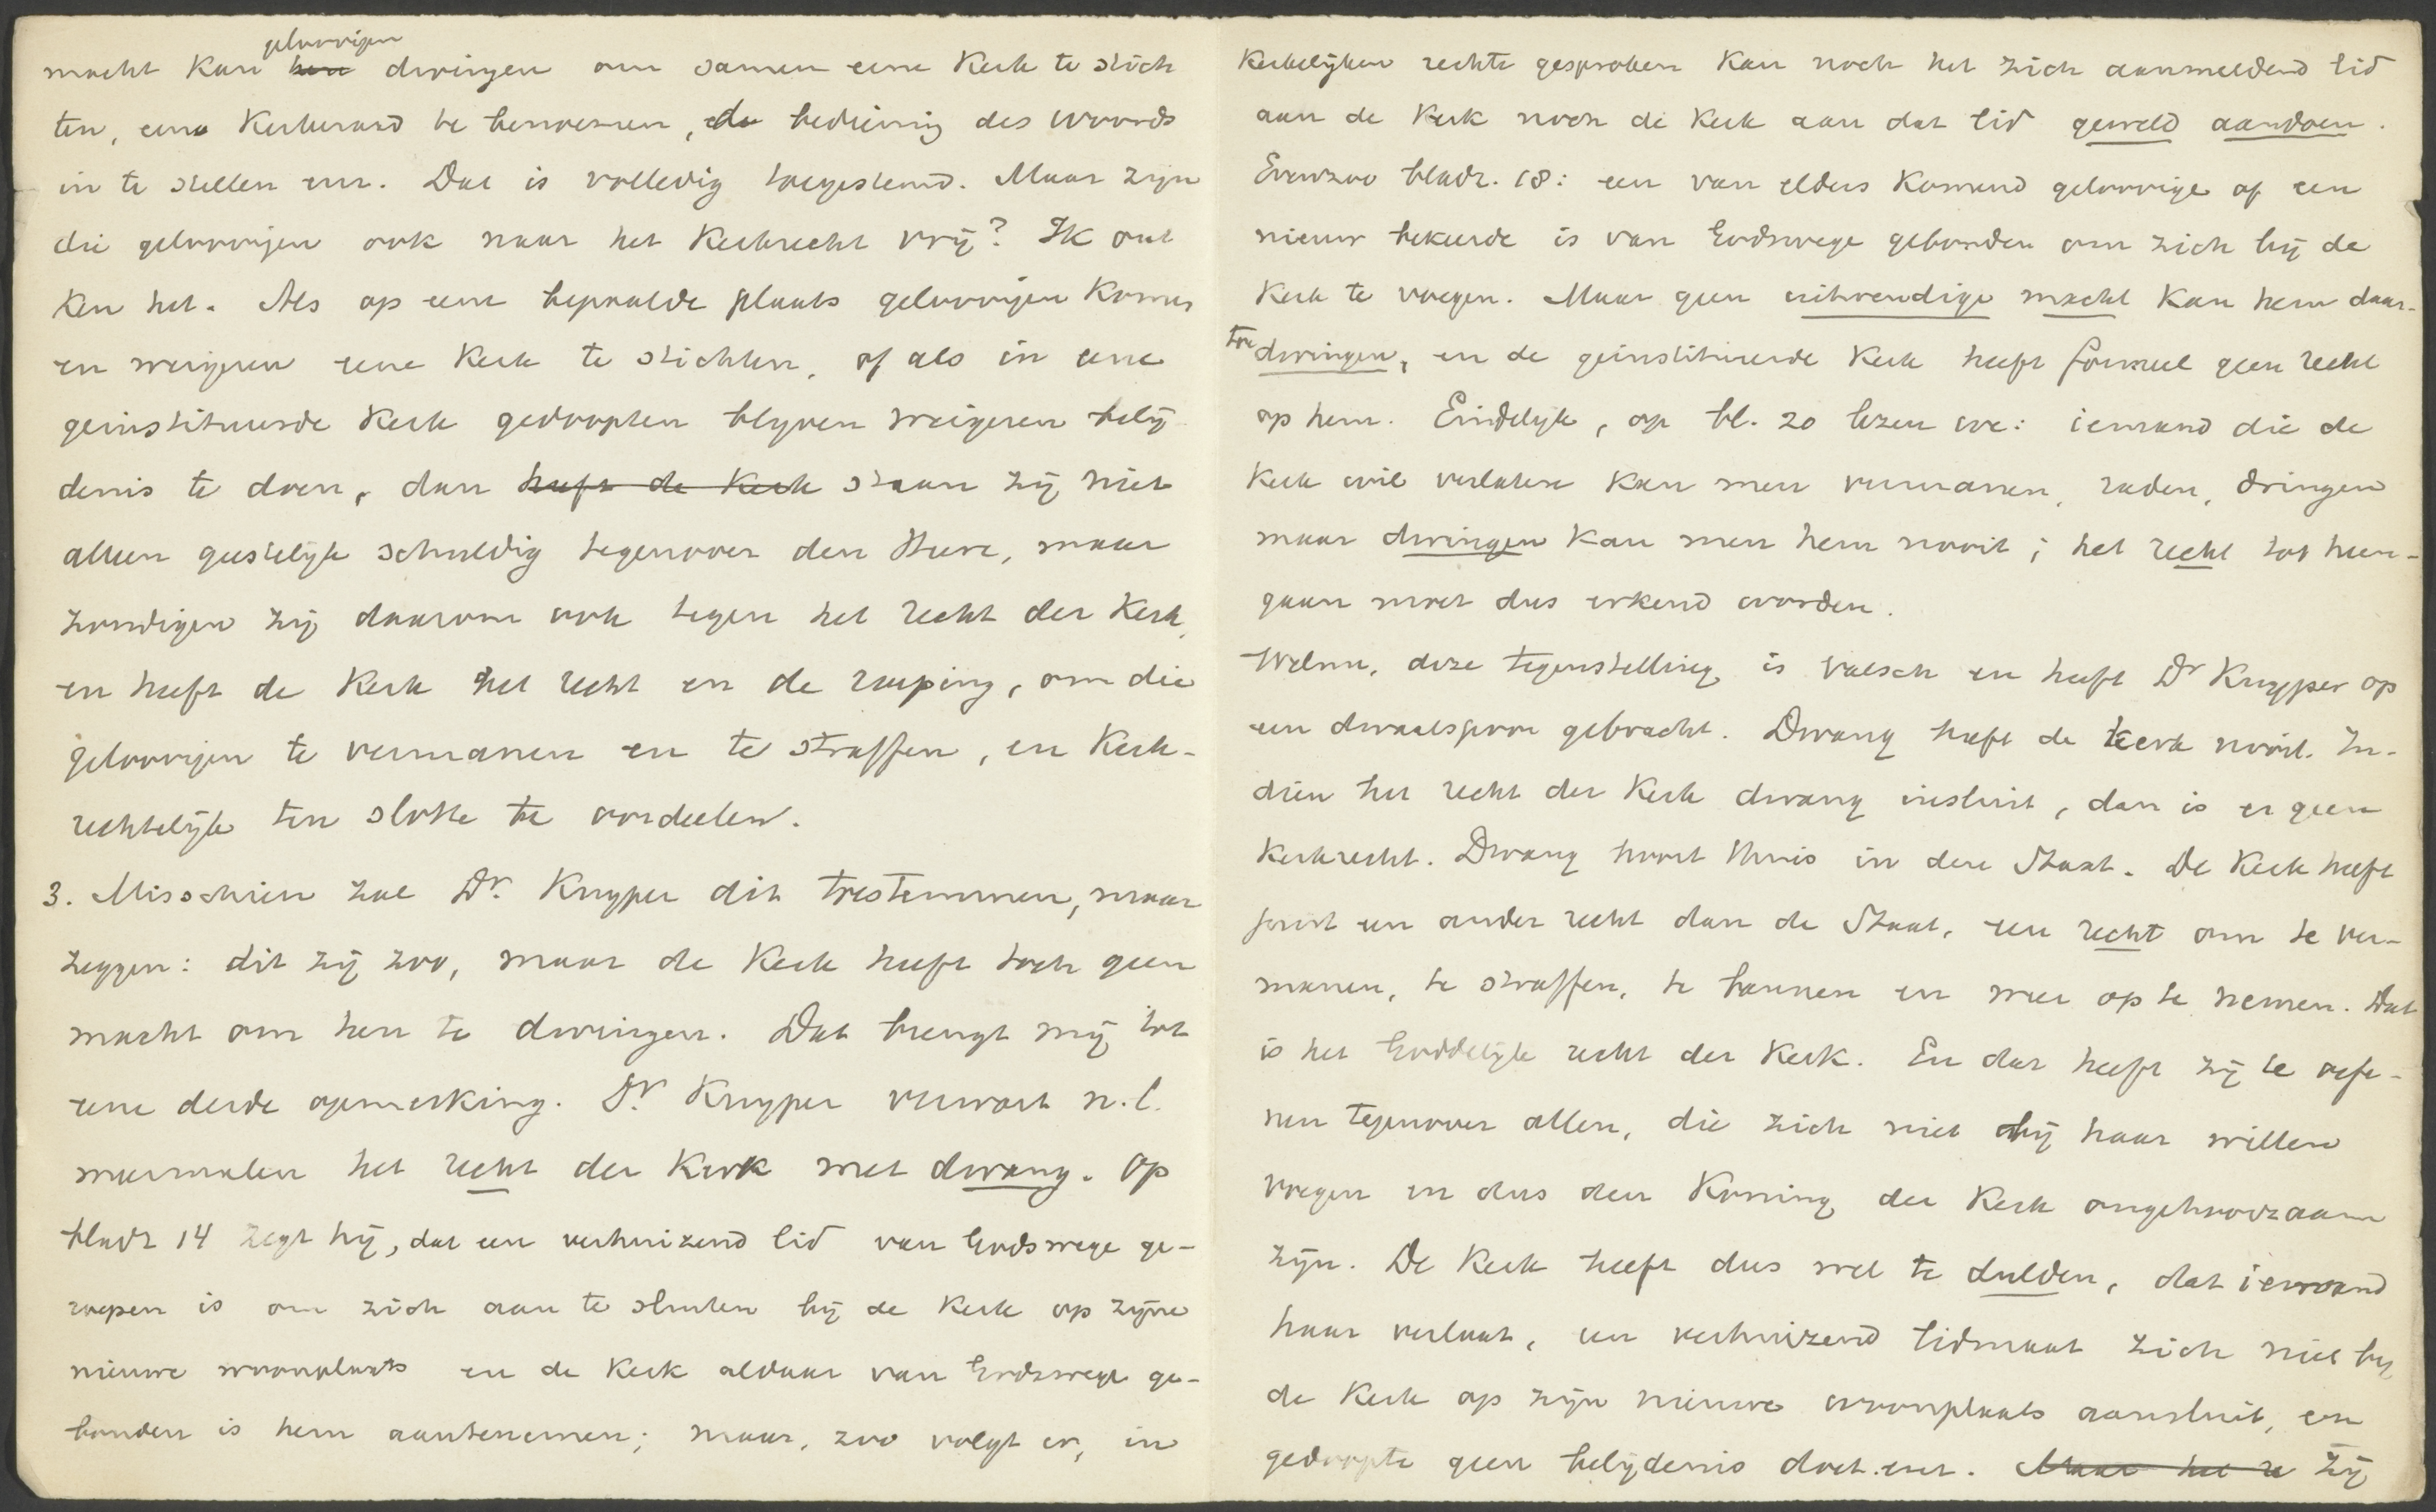 geloovigen
macht kan hen dwingen om samen eene Kerk te stich
ten, eene Kerkeraad te benoemen, de bediening des woords
in te stellen enz. Dat is volledig toegestemd. Maar zijn
die geloovigen ook naar het Kerkrecht vrij? Ik ont
ken het. Als op eene bepaalde plaats geloovigen komen
en weigeren eene Kerk te stichten, of als in eene
geinstitueerde Kerk gedoopten blijven weigeren belij
denis te doen, dan heeft de Kerk staan zij niet
alleen geestelijk schuldig tegenover den Heere, maar
zondigen zij daarom ook tegen het recht der Kerk,
en heeft de Kerk het recht en de roeping, om die
geloovigen te vermanen en te straffen, en Kerk-
rechtelijk ten slotte te oordeelen.
3. Misschien zal Dr. Kuyper dit toestemmen, maar
zeggen: dit zij zoo, maar de Kerk heeft toch geen
macht om hen te dwingen. Dat brengt mij tot
eene derde opmerking. Dr. Kuyper verwart n.l.
meermalen het recht der Kerk met dwang. Op
bladz 14 zegt hij, dat een verhuizend lid van Godswege ge-
roepen is om zich aan te sluiten bij de Kerk op zijne
nieuwe woonplaats en de Kerk aldaar van Godswege ge-
bonden is hem aantenemen; maar, zoo volgt er, in
Kerkelijken rechte gesproken kan noch het zich aanmeldend lid
aan de Kerk noch de Kerk aan dat lid geweld aandoen.
Evenzoo bladz. 18: een van elders komend geloovige of een
nieuw bekeerde is van Godswege gebonden om zich bij de
Kerk te voegen. Maar geen uitwendige macht kan hem daar-
toe dwingen, en de geinstitueerde Kerk heeft formeel geen recht
op hem. Eindelijk, op bl. 20 lezen we: iemand die de
Kerk wil verlaten kan men vermanen, raden, dringen
maar dwingen kan men hem nooit; het recht tot heen-
gaan moet dus erkend worden.
Welnu, deze tegenstelling is valsch en heeft Dr Kuyper op
een dwaalspoor gebracht. Dwang heeft de Kerk nooit. In-
dien het recht der Kerk dwang insluit, dan is er geen
Kerkrecht. Dwang hoort thuis in den Staat. De Kerk heeft
juist een ander recht dan de Staat, een recht om te ver-
manen, te straffen, te bannen en weer op te nemen. Dat
is het Goddelijk recht der Kerk. En dat heeft zij te oefe-
nen tegenover allen, die zich niet bij haar willen
voegen en dus den Koning der Kerk ongehoorzaam
zijn. De Kerk heeft dus wel te dulden, dat iemand
haar verlaat, een verhuizend lidmaat zich niet bij
de Kerk op zijn nieuwe woonplaats aansluit, een
gedoopte geen belijdenis doet enz. Maar het re Zij